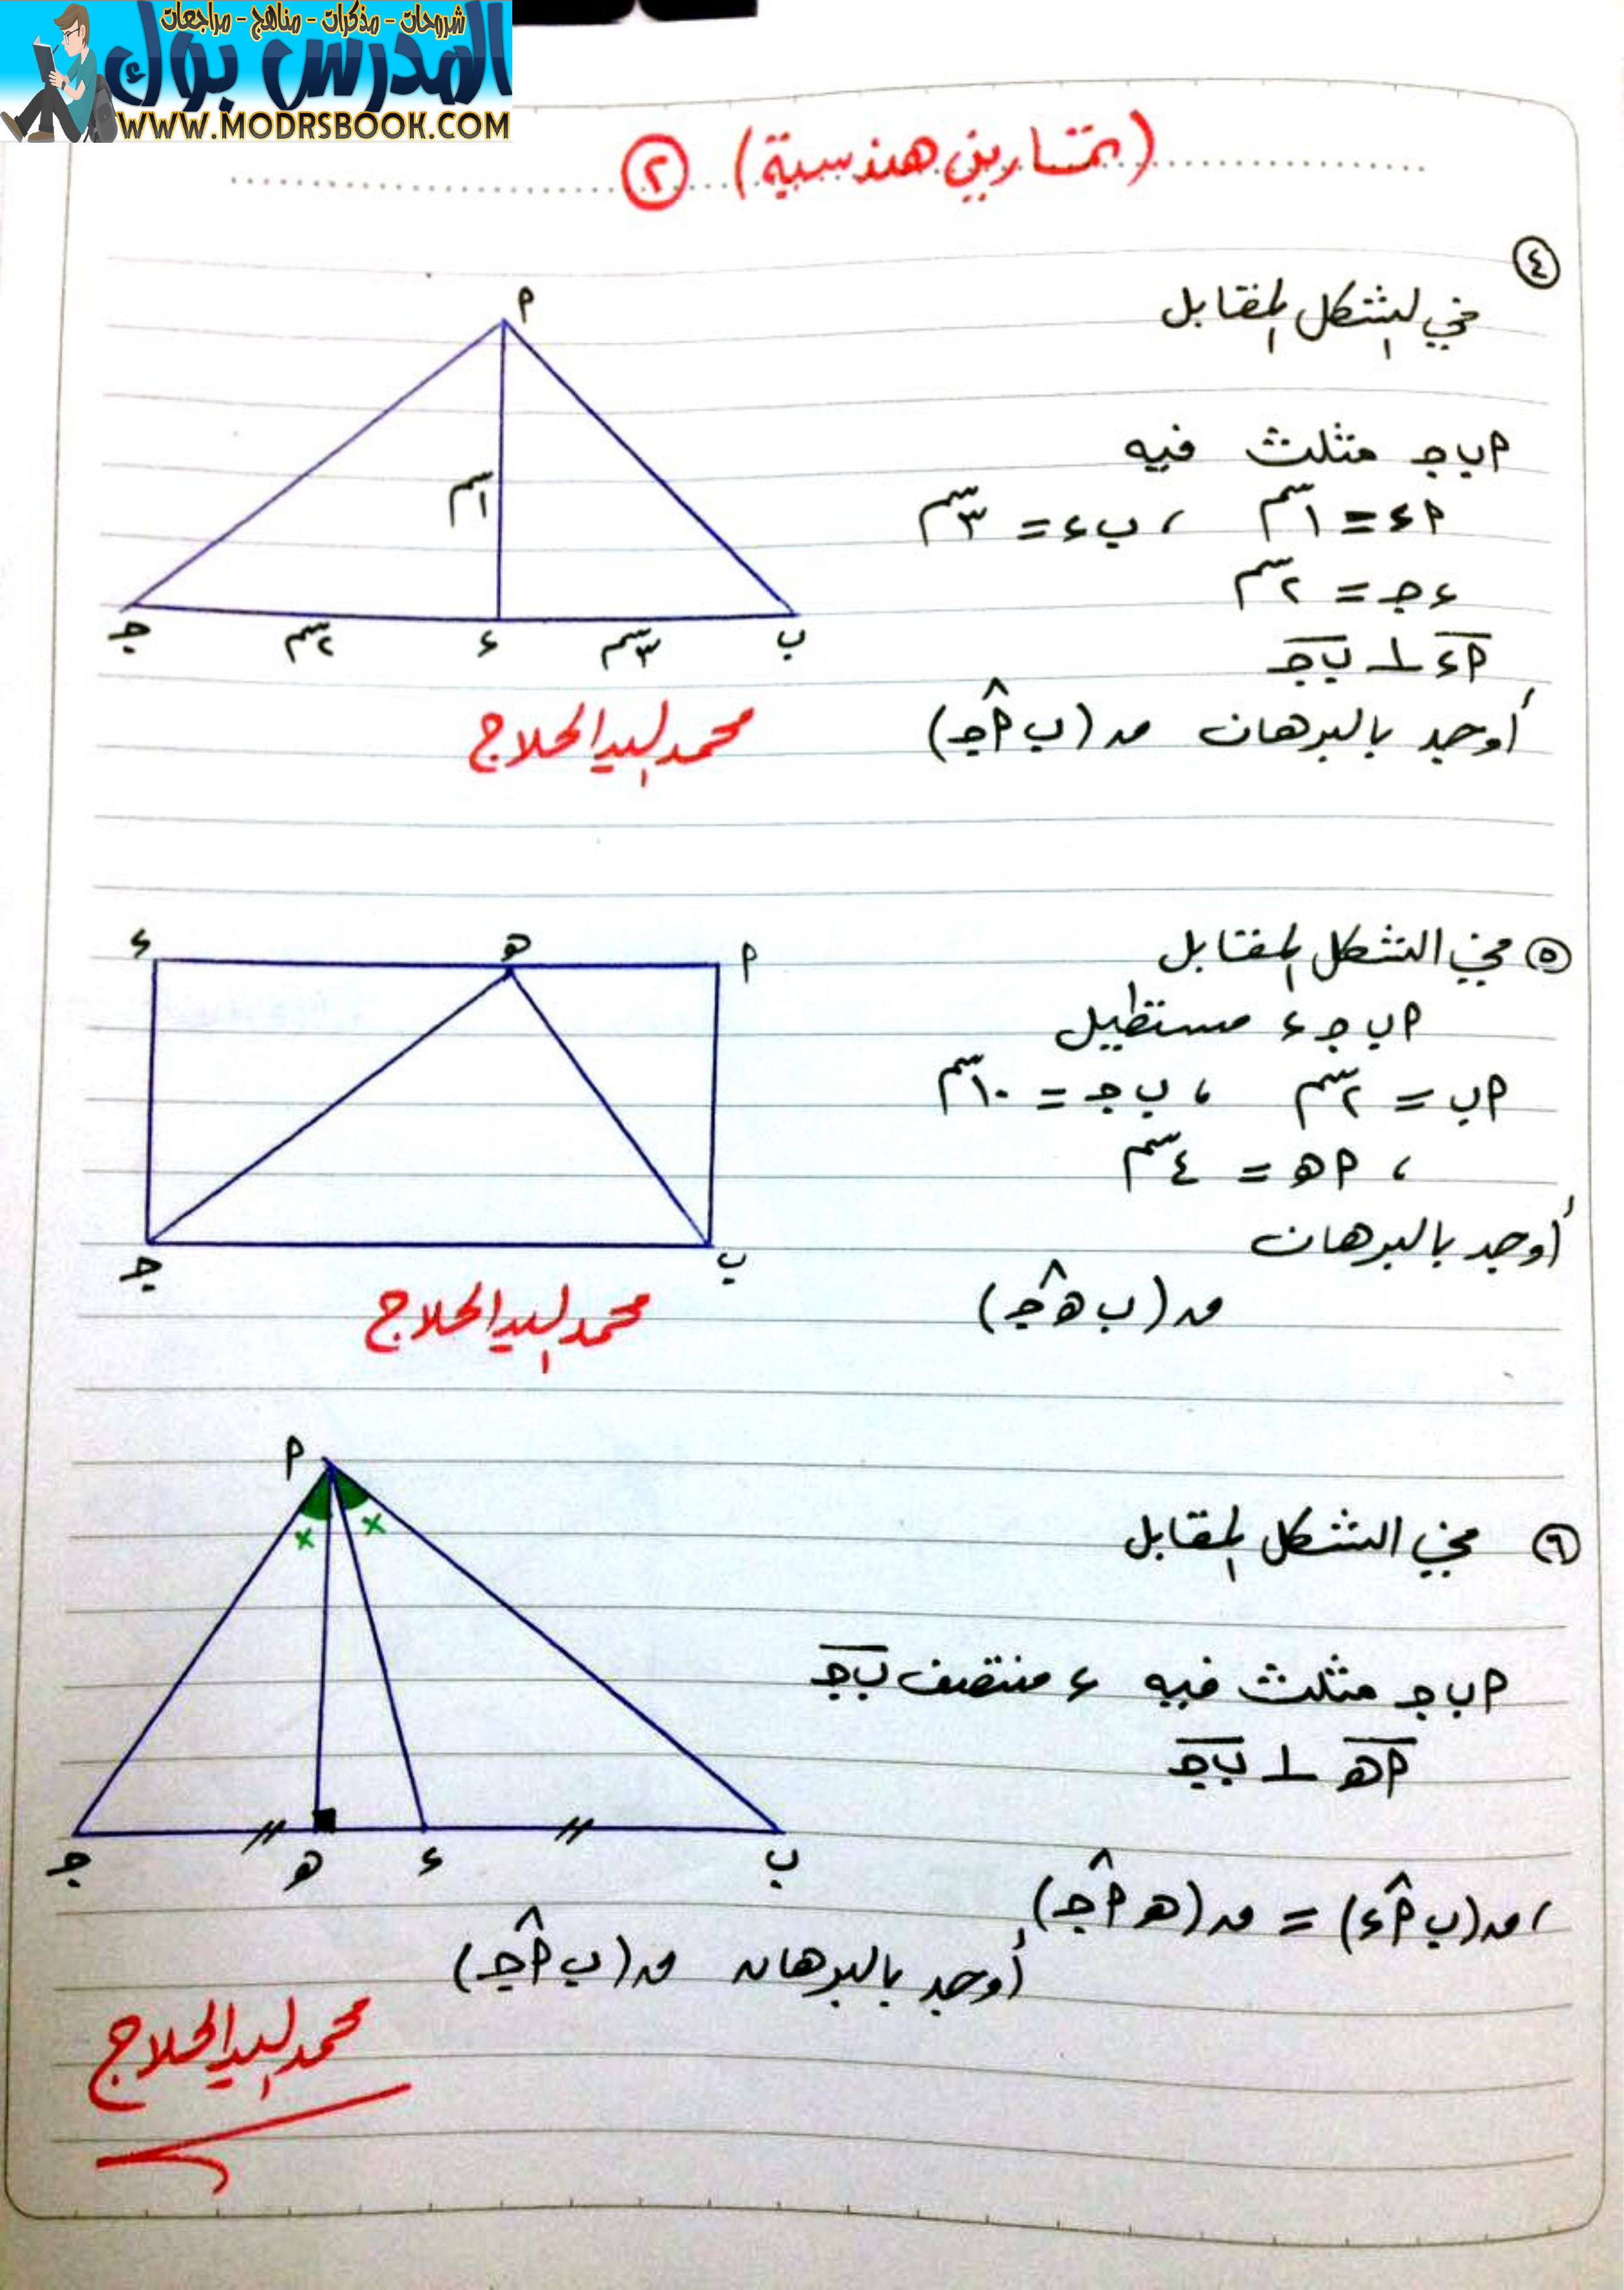 شروحات - مذكرات - مناهج - مراجعات
المدرس بوك
WWW.MODRSBOOK.COM
(تمارين هندسية) ٢
٤
في الشكل المقابل
٢ب جـ مثلث فيه
٢ء = ١سم ، ب ء = ٣سم
ء جـ = ٢سم
٢ء ⊥ ب جـ
أوجد بالبرهان ق(ب ٢̂ جـ)
٢
١سم
جـ ٢سم ء ٣سم ب
محمد السيد الحلاج
٥ في الشكل المقابل
٢ب جـ ء مستطيل
٢ب = ٢سم ، ب جـ = ١٠سم
، ٢هـ = ٤سم
أوجد بالبرهان
ق(ب هـ̂ جـ)
ء هـ ٢
جـ ب
محمد السيد الحلاج
٦ في الشكل المقابل
٢ب جـ مثلث فيه ء منتصف ب جـ
٢هـ ⊥ ب جـ
، ق(ب ٢̂ ء) = ق(هـ ٢̂ جـ)
أوجد بالبرهان ق(ب ٢̂ جـ)
٢
× ×
جـ هـ ء ب
محمد السيد الحلاج